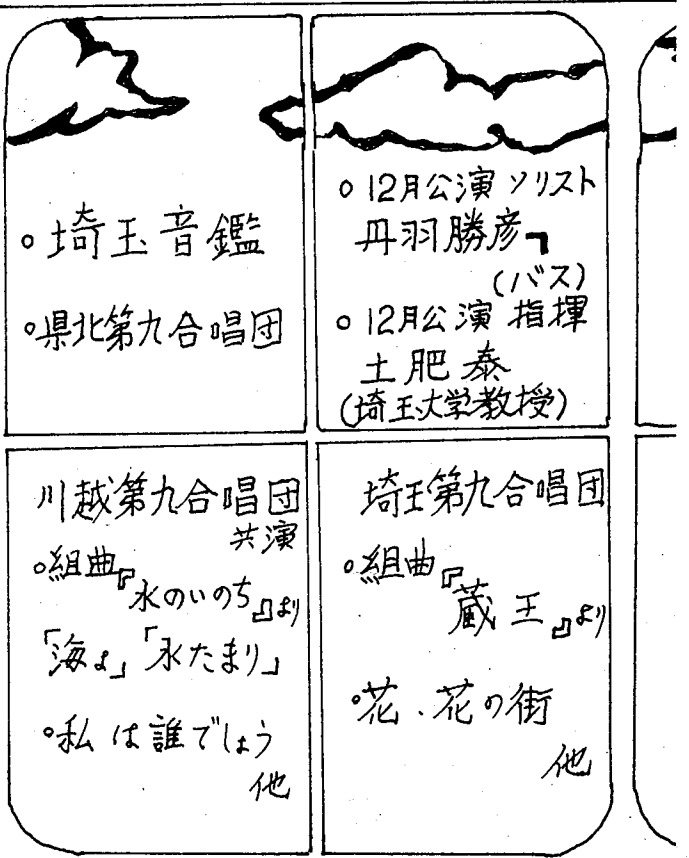 ○埼玉音鑑
○県北第九合唱団
○12月公演 ソリスト
丹羽勝彦
(バス)
○12月公演 指揮
土肥 泰
(埼玉大学教授)
川越第九合唱団
共演
○組曲『水のいのち』より
「海よ」「水たまり」
○私は誰でしょう
他
埼玉第九合唱団
○組曲『蔵王』より
○花、花の街
他